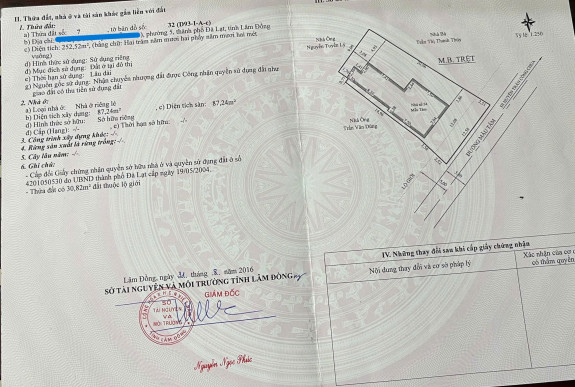 II. Thửa đất, nhà ở và tài sản khác gắn liền với đất
1. Thửa đất:
a) Thửa đất số: 7 , tờ bản đồ số: 32 (D93-1-A-c)
b) Địa chỉ: ), phường 5, thành phố Đà Lạt, tỉnh Lâm Đồng
c) Diện tích: 252,52m², (bằng chữ: Hai trăm năm mươi hai phẩy năm mươi hai mét
vuông)
d) Hình thức sử dụng: Sử dụng riêng
đ) Mục đích sử dụng: Đất ở tại đô thị
e) Thời hạn sử dụng: Lâu dài
g) Nguồn gốc sử dụng: Nhận chuyển nhượng đất được Công nhận quyền sử dụng đất như
giao đất có thu tiền sử dụng đất
2. Nhà ở:
a) Loại nhà ở: Nhà ở riêng lẻ
b) Diện tích xây dựng: 87,24m² , c) Diện tích sàn: 87,24m²
d) Hình thức sở hữu: Sở hữu riêng
đ) Cấp (Hạng): -/- , e) Thời hạn sở hữu: -/-
3. Công trình xây dựng khác: -/-
4. Rừng sản xuất là rừng trồng: -/-
5. Cây lâu năm: -/-
6. Ghi chú:
- Cấp đổi Giấy chứng nhận quyền sở hữu nhà ở và quyền sử dụng đất ở số
4201050530 do UBND thành phố Đà Lạt cấp ngày 19/05/2004.
- Thửa đất có 30,82m² đất thuộc lộ giới
Lâm Đồng, ngày 31 tháng 8 năm 2016
SỞ TÀI NGUYÊN VÀ MÔI TRƯỜNG TỈNH LÂM ĐỒNG
GIÁM ĐỐC
SỞ
TÀI NGUYÊN
VÀ
MÔI TRƯỜNG
Nguyễn Ngọc Phúc
Nhà Ông
Nguyễn Tuyển Lý
Nhà Bà
Trần Thị Thanh Thủy
Tỷ lệ: 1/250
M.B. TRỆT
Nhà Ông
Trần Văn Dũng
LỘ GIỚI
IV. Những thay đổi sau khi cấp giấy chứng nhận
Nội dung thay đổi và cơ sở pháp lý
Xác nhận của cơ
có thẩm quyền